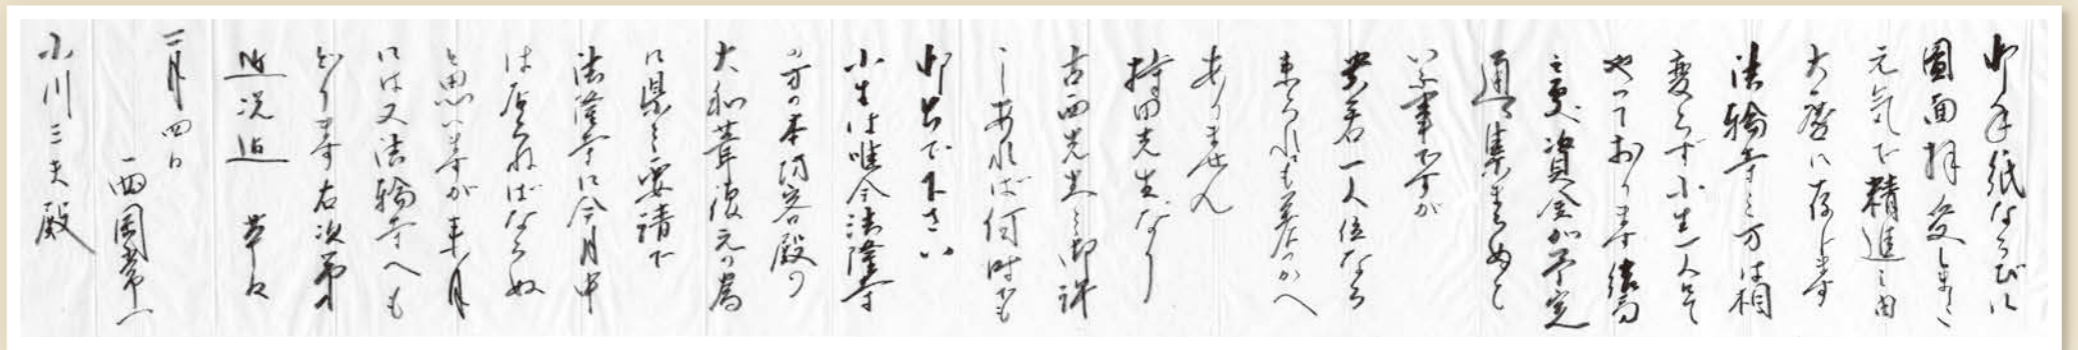 御手紙ならびに
圖面拝受しました
元気で精進の由
大慶に存じます
法輪寺の方は相
変らず小生一人で
やっております結局
之處、資金が予定
通り集まらぬと
いふ事ですが
貴君一人位なら
来られても差つかへ
ありません
持田先生なり
古西先生の御許
しあれば何時でも
御出で下さい
小生は唯今法隆寺
の方の本坊客殿の
大和葺復元の為
に県の要請で
法隆寺に今月中
は居らねばならぬ
と思いますが来月
には又法輪寺へも
どります右次第
近況迄 草々
二月四日
西岡常一
小川三夫殿